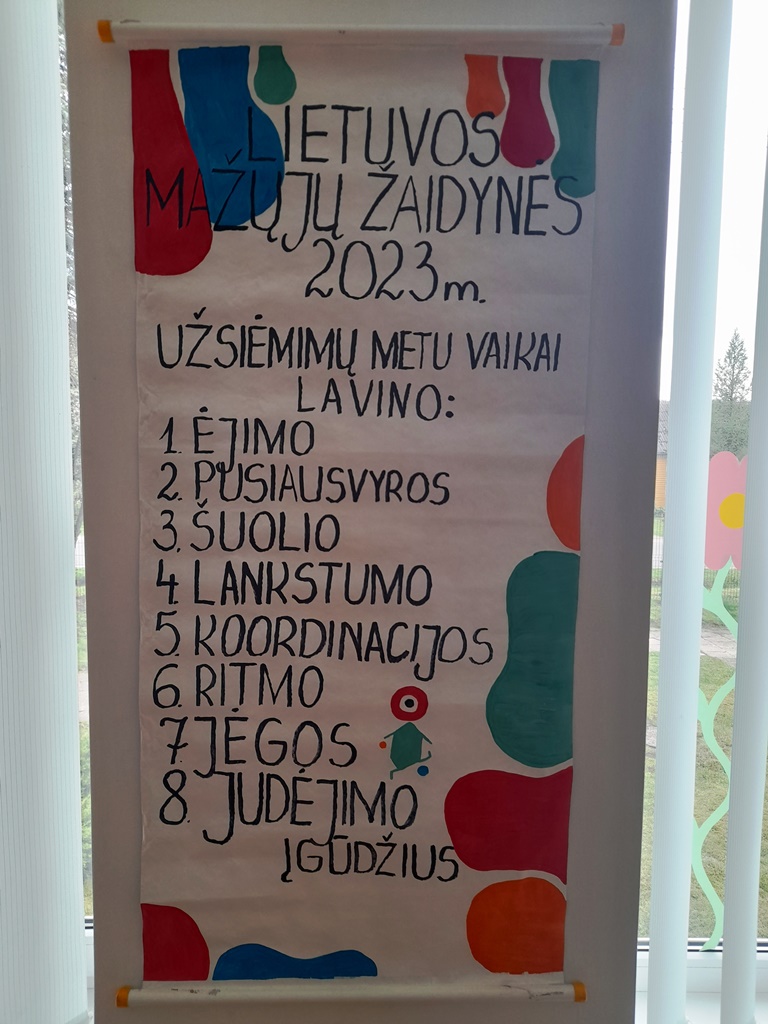 LIETUVOS
MAŽŲJŲ ŽAIDYNĖS
2023m.
UŽSIĖMIMŲ METU VAIKAI
LAVINO:
1. ĖJIMO
2. PUSIAUSVYROS
3. ŠUOLIO
4. LANKSTUMO
5. KOORDINACIJOS
6. RITMO
7. JĖGOS
8. JUDĖJIMO
ĮGŪDŽIUS